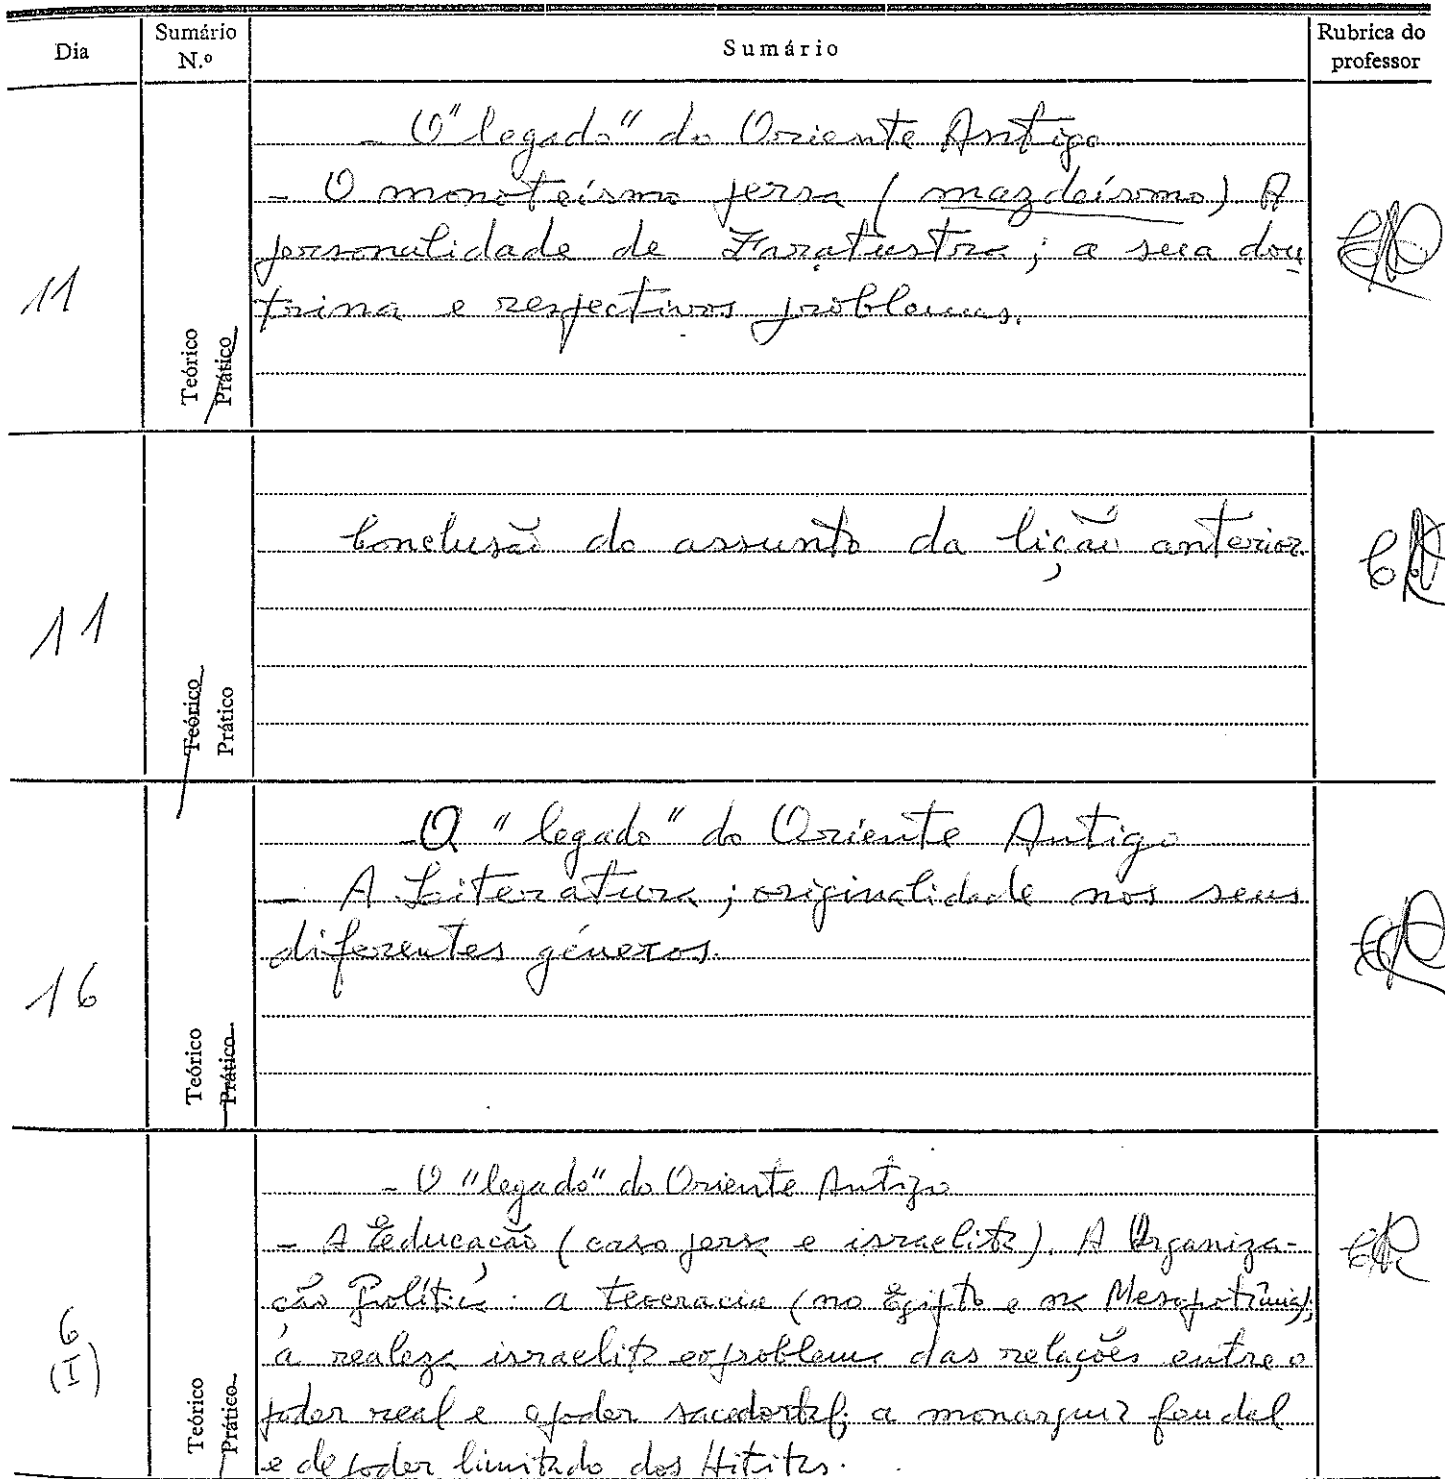 Dia
Sumário
N.º
Sumário
Rubrica do
professor
11
Teórico
Prático
- O "legado" do Oriente Antigo
- O monoteísmo persa (mazdeísmo) A
personalidade de Zaratustra; a sua dou
trina e respectivos problemas.
11
Teórico
Prático
Conclusão do assunto da lição anterior
16
Teórico
Prático
- O "legado" do Oriente Antigo
- A Literatura; originalidade nos seus
diferentes géneros.
6
(I)
Teórico
Prático
- O "legado" do Oriente Antigo
- A Educação (caso persa e israelita). A Organiza-
ção Política: a teocracia (no Egipto e na Mesopotâmia);
a realeza israelita e o problema das relações entre o
poder real e o poder sacerdotal; a monarquia feudal
e de poder limitado dos Hititas.